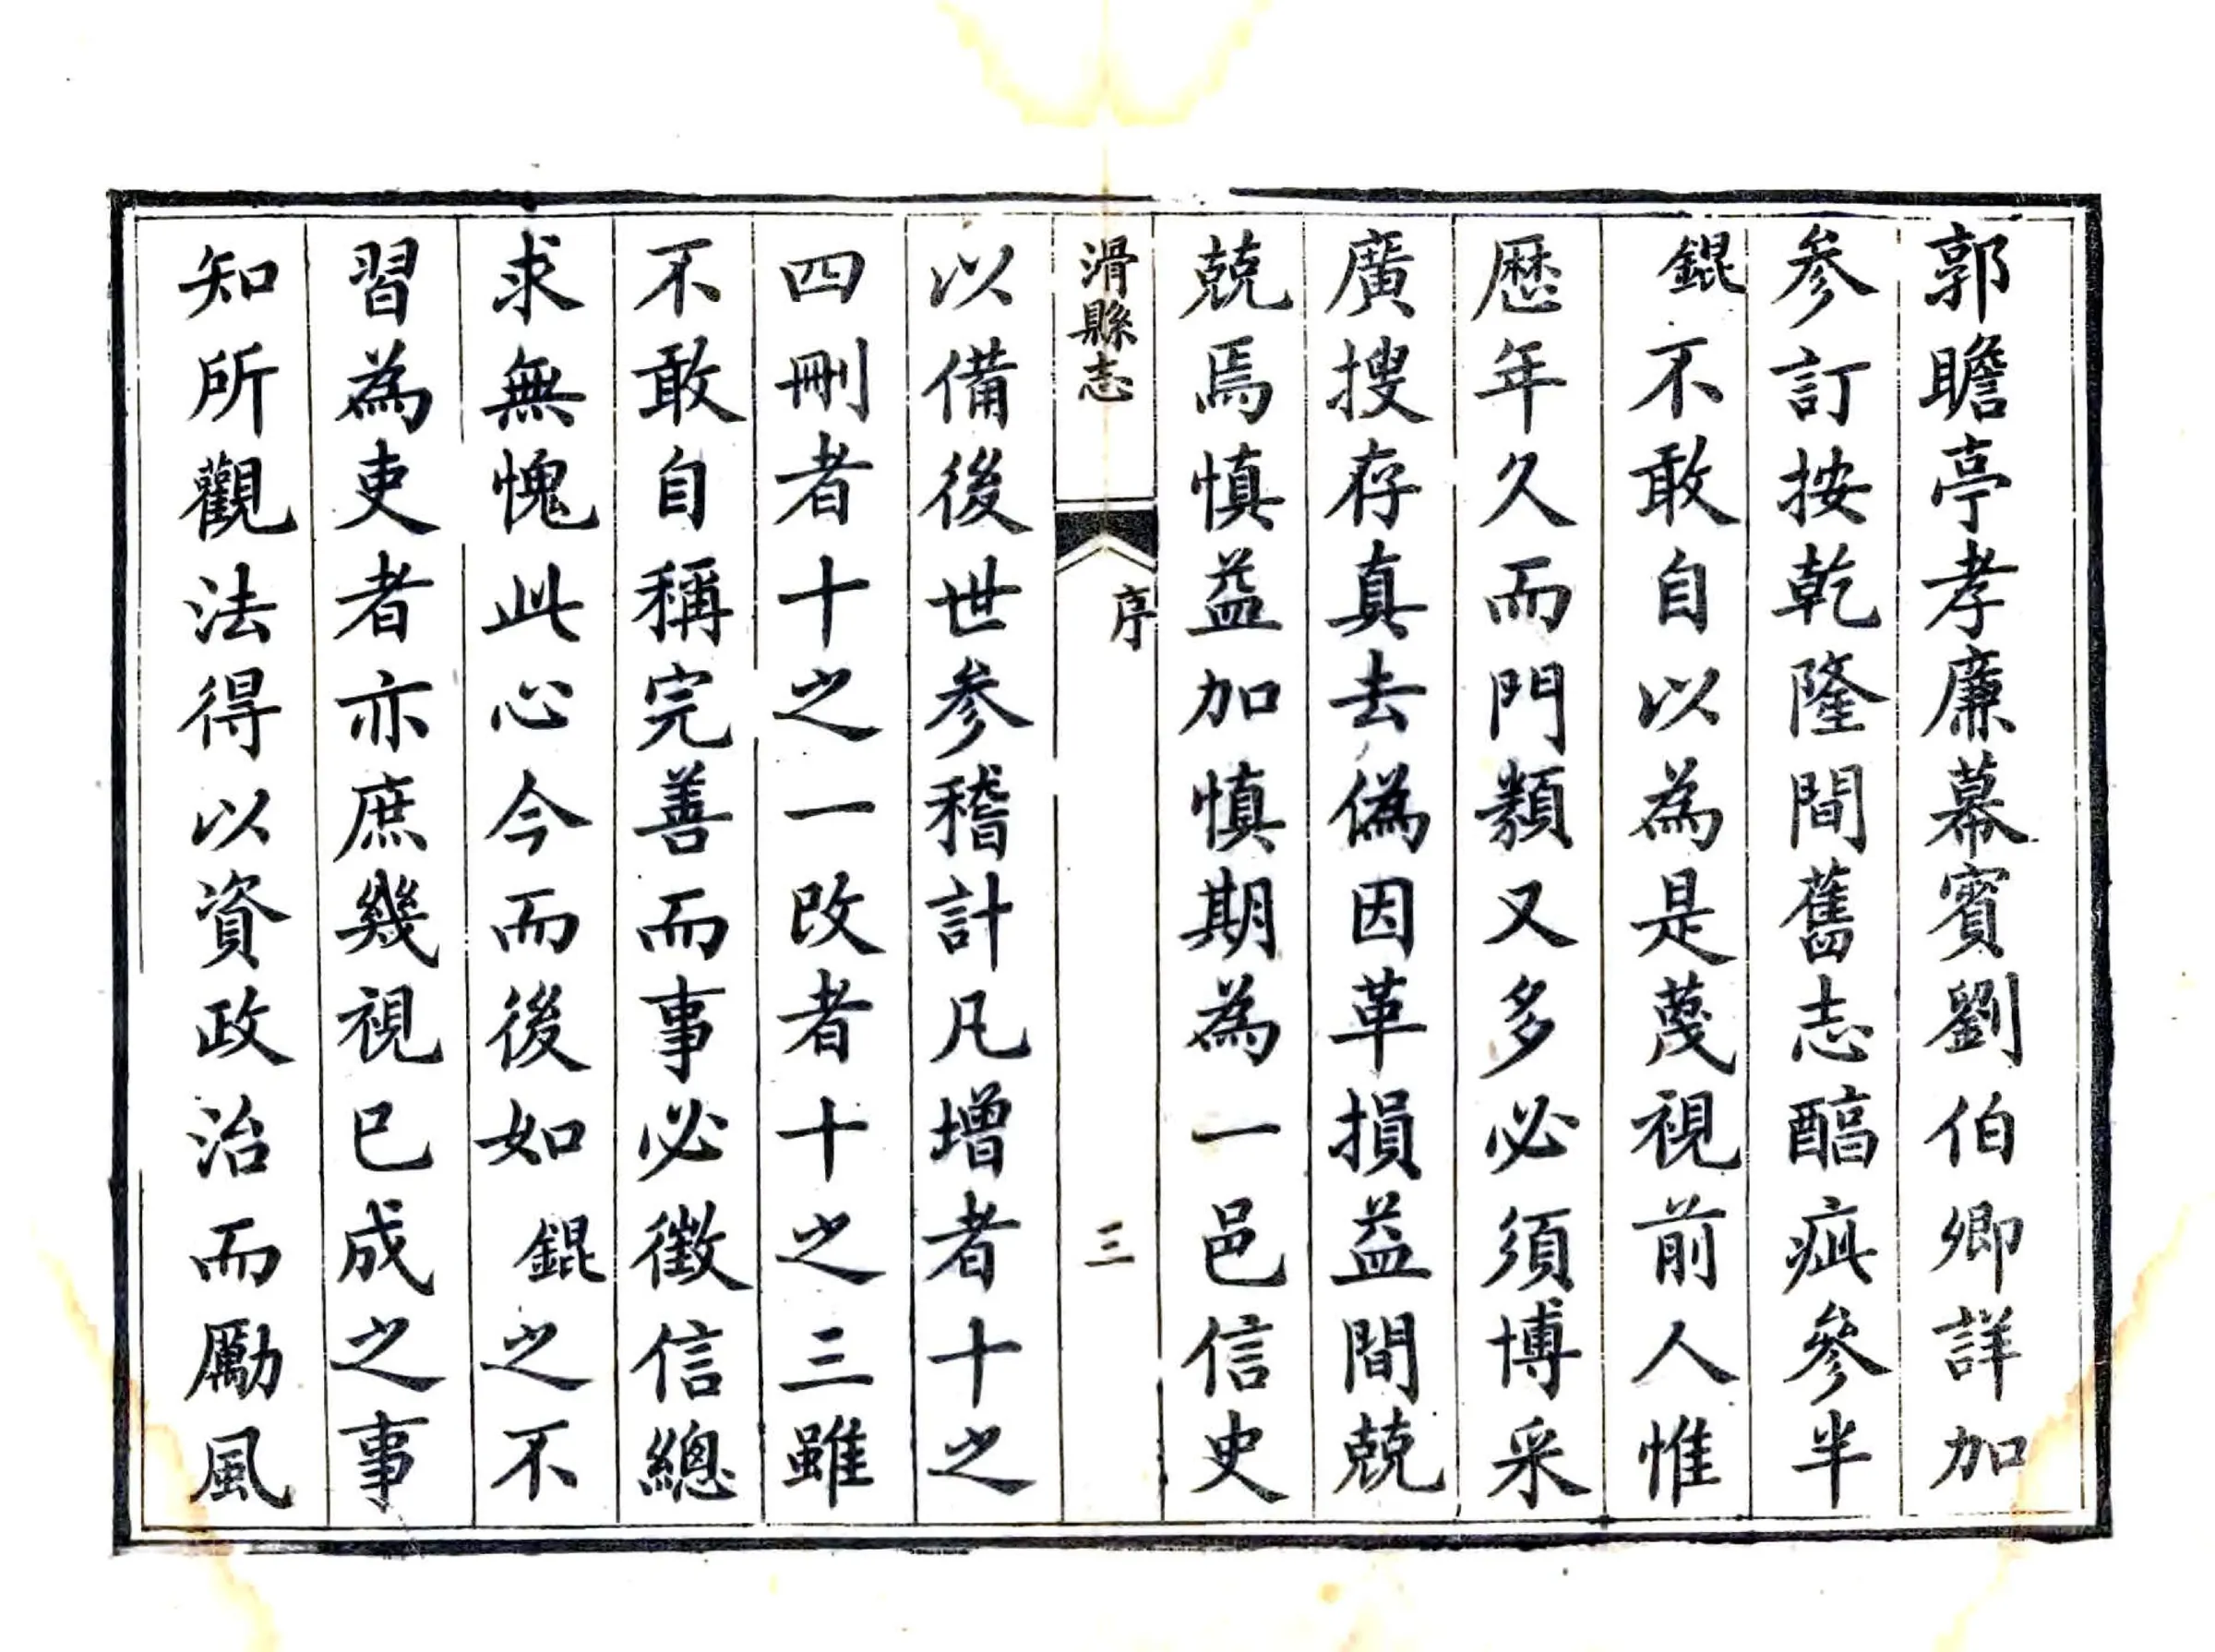 郭瞻亭孝廉幕賓劉伯卿詳加
參訂按乾隆間舊志醕疵參半
錕不敢自以為是蔑視前人惟
歷年久而門類又多必須博采
廣搜存真去偽因革損益間兢
兢焉慎益加慎期為一邑信史
滑縣志
序
三
以備後世參稽計凡增者十之
四刪者十之一改者十之三雖
不敢自稱完善而事必徵信總
求無愧此心今而後如錕之不
習為吏者亦庶幾視已成之事
知所觀法得以資政治而勵風